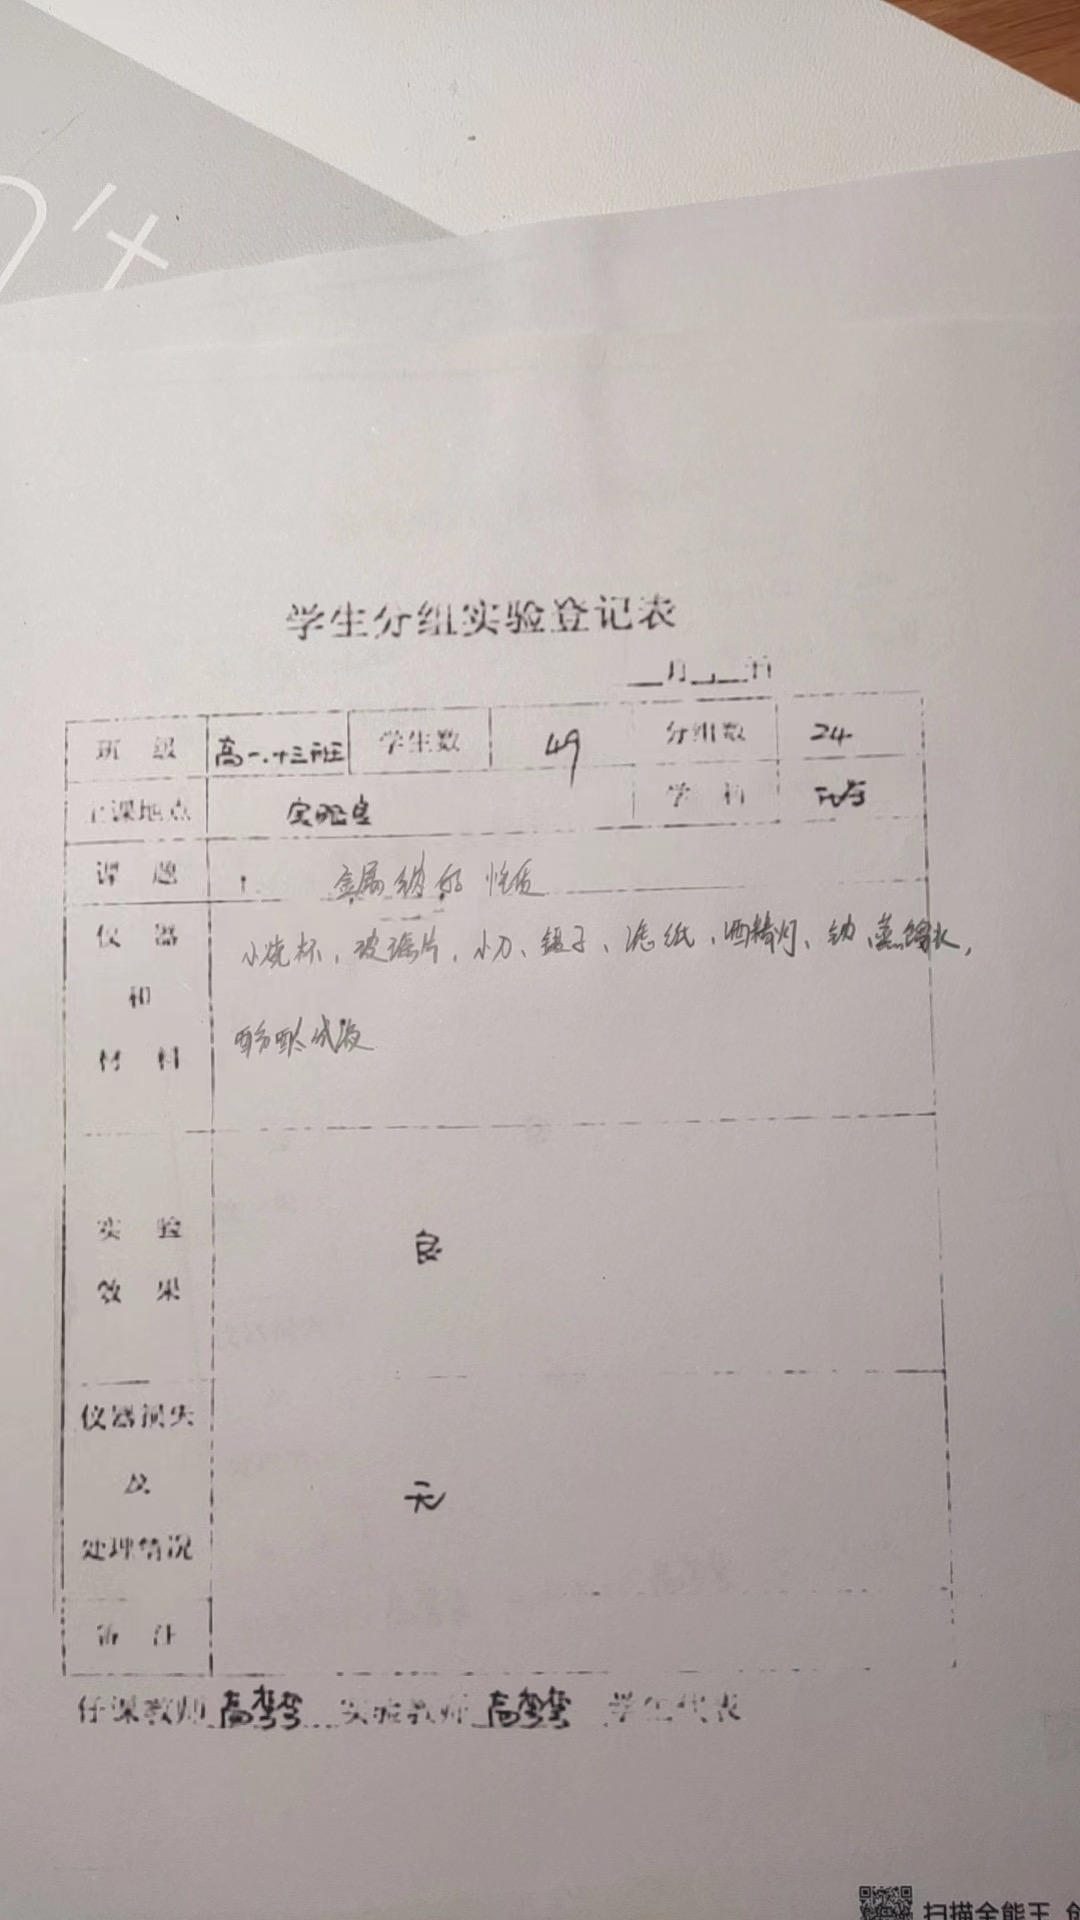 学生分组实验登记表
月 日
班级 高一.十三班 学生数 49 分组数 24
上课地点 实验室 学科 化学
课题 金属钠的性质
仪器和材料 小烧杯、玻璃片、小刀、镊子、滤纸、酒精灯、钠、蒸馏水、
酚酞试液
实验效果 良
仪器损失及处理情况 无
备注
任课教师 实验教师 学生代表
扫描全能王 创